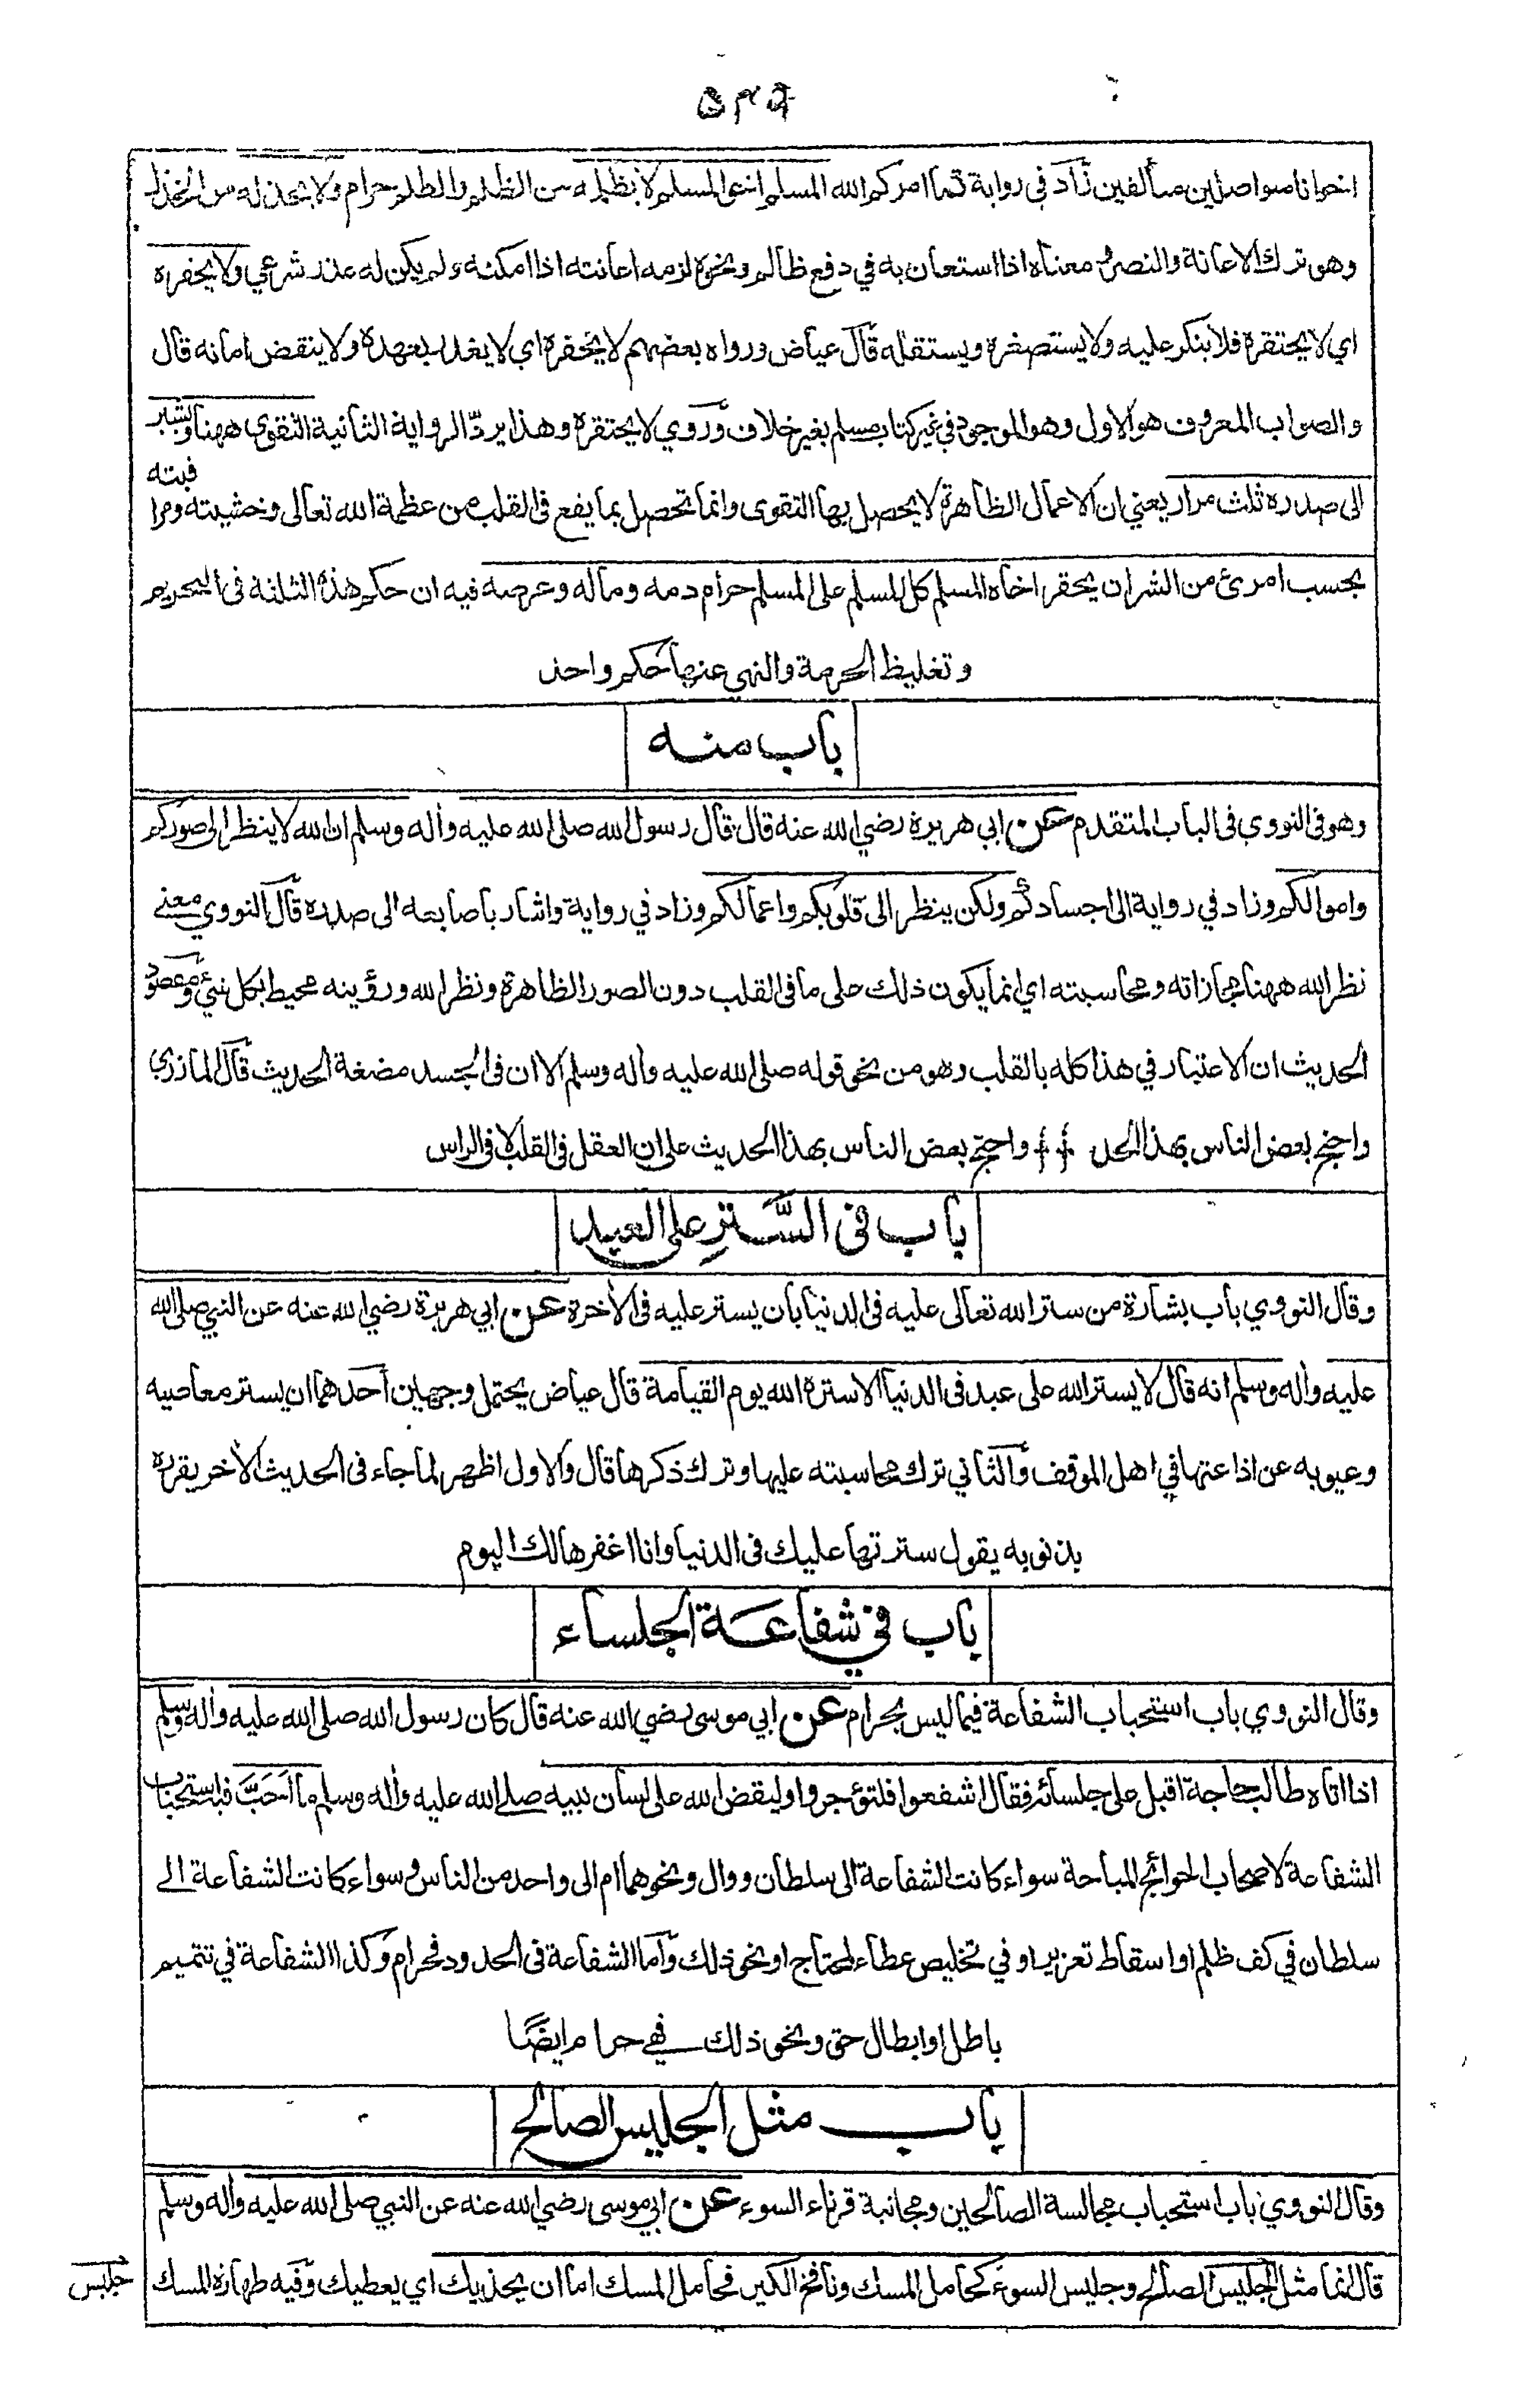 اخوانا متواصلين متألفين زاد في رواية كما امركم الله المسلم اخو المسلم لا يظلمه من الظلم والظلم حرام ولا يخذله من الخذل
وهو ترك الاعانة والنصر ومعناه اذا استعان به في دفع ظالم ونحوه لزمه اعانته اذا امكنه ولم يكن له عذر شرعي ولا يحقره
اي لا يحتقره فلا ينكر عليه ولا يستصغره ويستقله قال عياض ورواه بعضهم لا يخفره اي لا يغدر بعهده ولا ينقض امانه قال
والصواب المعروف هو الاول وهو الموجود في غير كتاب مسلم بغير خلاف وروي لا يحتقره وهذا يرد الرواية الثانية التقوى ههنا ويشير
الى صدره ثلث مرار يعني ان الاعمال الظاهرة لا يحصل بها التقوى وانما تحصل بما يقع في القلب من عظمة الله تعالى وخشيته ومرا
قبته
بحسب امرئ من الشر ان يحقر اخاه المسلم كل المسلم على المسلم حرام دمه وماله وعرضه فيه ان حكم هذه الثلثة في التحريم
وتغليظ الحرمة والنهي عنها حكم واحد
باب منه
وهو في النووي في الباب المتقدم عن ابي هريرة رضي الله عنه قال قال رسول الله صلى الله عليه وأله وسلم ان الله لا ينظر الى صوركم
واموالكم وزاد في رواية الى اجسادكم ولكن ينظر الى قلوبكم واعمالكم وزاد في رواية واشار بأصابعه الى صدره قال النووي معنى
نظر الله ههنا مجازاته ومحاسبته اي انما يكون ذلك على ما في القلب دون الصور الظاهرة ونظر الله ورؤيته محيط بكل شيء ومقصود
الحديث ان الاعتبار في هذا كله بالقلب وهو من نحو قوله صلى الله عليه وأله وسلم الا ان في الجسد مضغة الحديث قال المازري
واحتج بعض الناس بهذا الحد واحتج بعض الناس بهذا الحديث على ان العقل في القلب لا في الراس
باب في السَّتر على العبد
وقال النووي باب بشارة من ستر الله تعالى عليه في الدنيا بأن يستر عليه في الأخرة عن ابي هريرة رضي الله عنه عن النبي صلى الله
عليه وأله وسلم انه قال لا يستر الله على عبد في الدنيا الا ستره الله يوم القيامة قال عياض يحتمل وجهين أحدهما ان يستر معاصيه
وعيوبه عن اذاعتها في اهل الموقف والثاني ترك محاسبته عليها وترك ذكرها قال والاول اظهر لما جاء في الحديث الأخر يقرره
بذنوبه يقول سترتها عليك في الدنيا وانا اغفرها لك اليوم
باب في شفاعة الجلساء
وقال النووي باب استحباب الشفاعة فيما ليس بحرام عن ابي موسى رضي الله عنه قال كان رسول الله صلى الله عليه وأله وسلم
اذا اتاه طالب حاجة اقبل على جلسائه فقال اشفعوا فلتؤجروا وليقض الله على لسان نبيه صلى الله عليه وأله وسلم ما أحَبَّ فيه استحباب
الشفاعة لاصحاب الحوائج المباحة سواء كانت الشفاعة الى سلطان ووال ونحوهما ام الى واحد من الناس وسواء كانت الشفاعة الى
سلطان في كف ظلم او اسقاط تعزير او في تخليص عطاء لمحتاج او نحو ذلك وأما الشفاعة في الحدود فحرام وكذا الشفاعة في تتميم
باطل او ابطال حق ونحو ذلك فهي حرام ايضًا
باب مثل الجليس الصالح
وقال النووي باب استحباب مجالسة الصالحين ومجانبة قرناء السوء عن ابي موسى رضي الله عنه عن النبي صلى الله عليه وأله وسلم
قال انما مثل الجليس الصالح وجليس السوء كحامل المسك ونافخ الكير فحامل المسك اما ان يحذيك اي يعطيك وفيه طهارة المسك
جليس